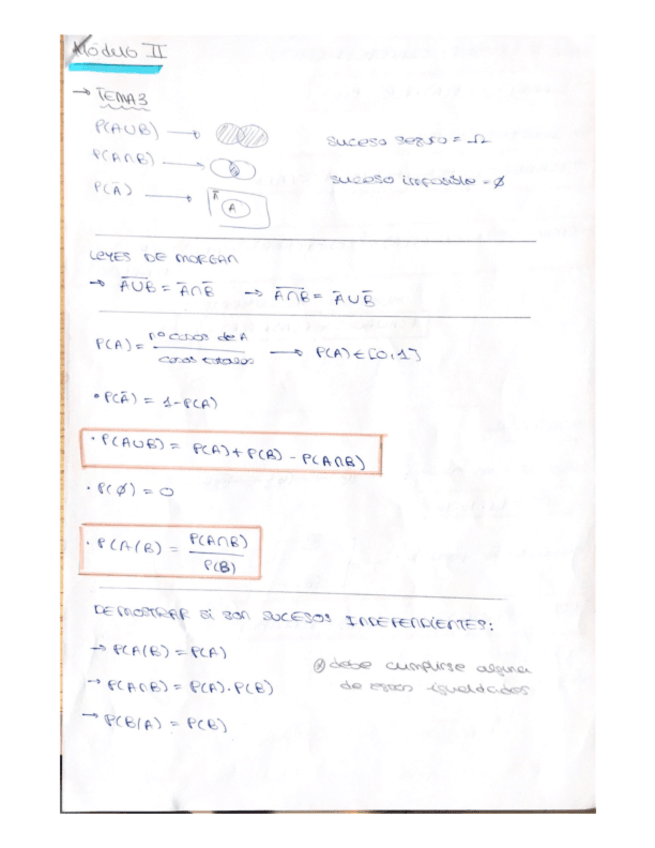 Módulo II
→ TEMA 3
P(A∪B) →
suceso seguro = Ω
P(A∩B) →
suceso imposible = ∅
P(Ā) →
Ā
A
LEYES DE MORGAN
→ A̅∪̅B̅ = Ā∩B̄ → A̅∩̅B̅ = Ā∪B̄
P(A) = nº casos de A / casos totales → P(A) ∈ [0,1]
• P(Ā) = 1-P(A)
• P(A∪B) = P(A) + P(B) - P(A∩B)
• P(∅) = 0
• P(A/B) = P(A∩B) / P(B)
DEMOSTRAR SI SON SUCESOS INDEPENDIENTES:
→ P(A/B) = P(A)
debe cumplirse alguna
→ P(A∩B) = P(A)·P(B)
de esas igualdades
→ P(B/A) = P(B)